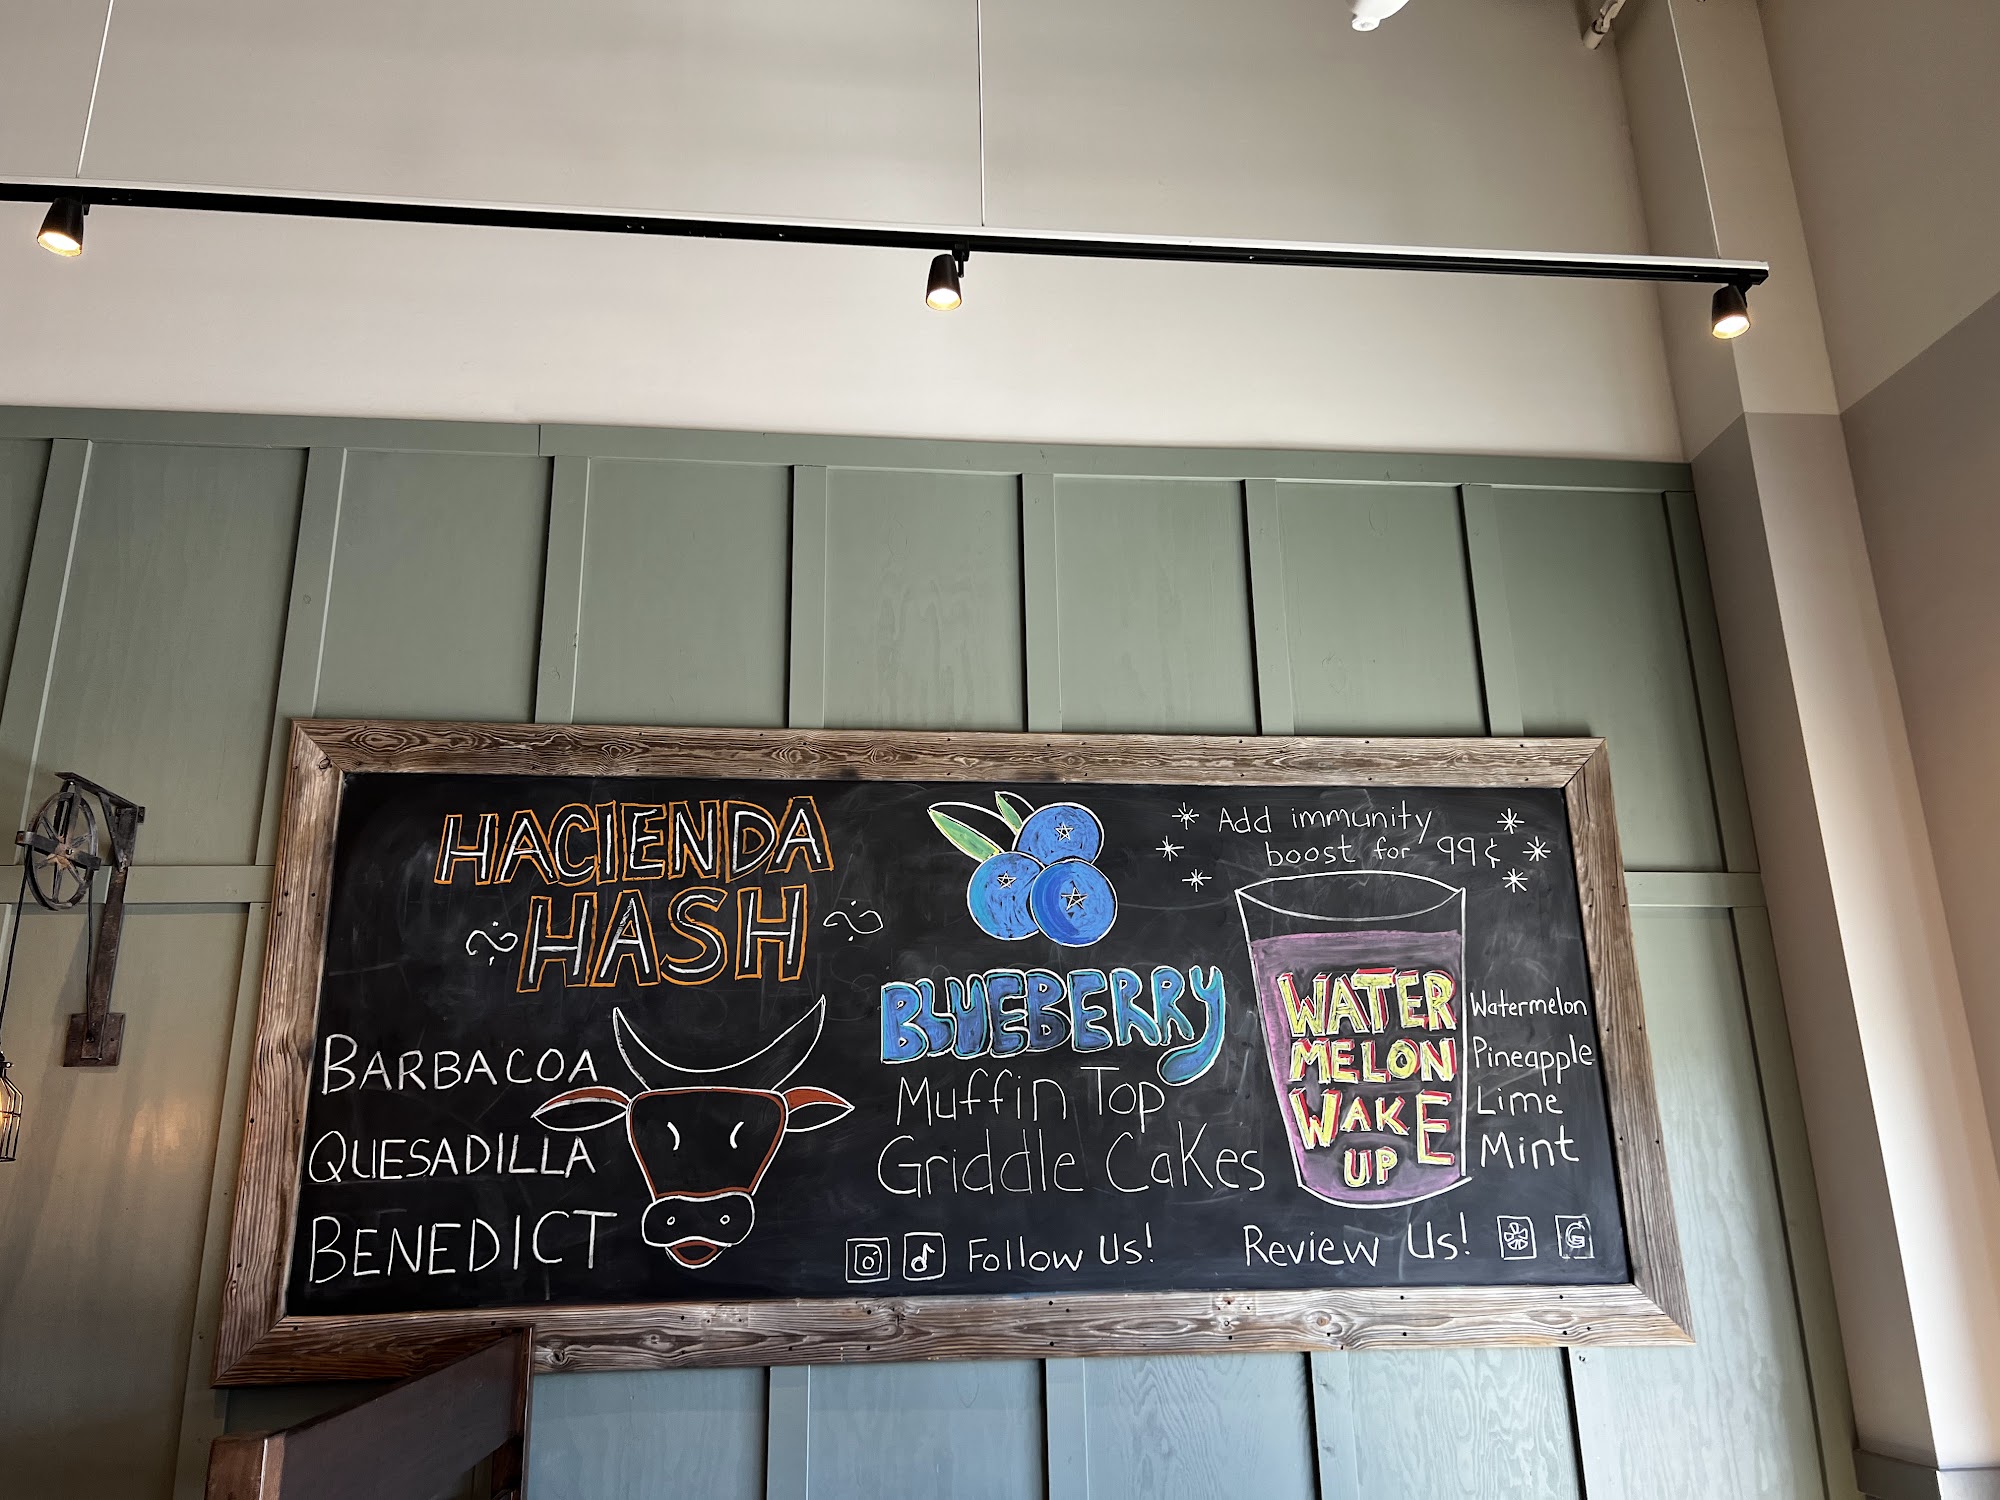 HACIENDA
HASH
BARBACOA
QUESADILLA
BENEDICT
BLUEBERRY
Muffin Top
Griddle Cakes
Follow Us!
Add immunity
boost for 99¢
WATER
MELON
WAKE
UP
Watermelon
Pineapple
Lime
Mint
Review Us!
G